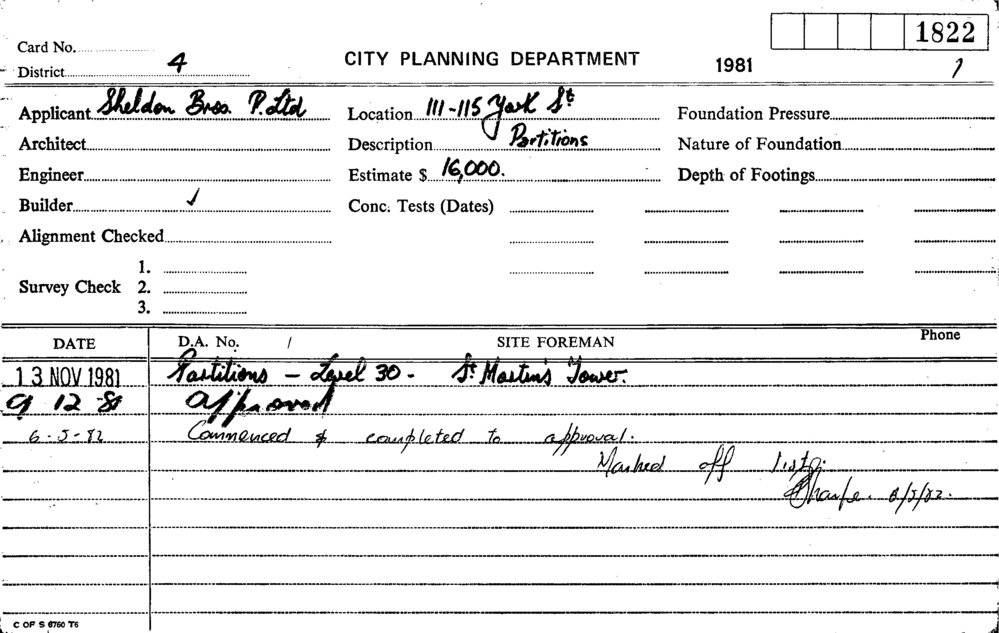 1822
Card No.
CITY PLANNING DEPARTMENT
1981
District 4
Applicant Sheldon Bros. P. Ltd
Location 111-115 York St
Foundation Pressure
Architect
Description Partitions
Nature of Foundation
Engineer
Estimate $ 16,000.
Depth of Footings
Builder ✓
Conc. Tests (Dates)
Alignment Checked
1.
Survey Check 2.
3.
DATE
D.A. No. /
SITE FOREMAN
Phone
13 NOV 1981 Partitions - Level 30 - St Martin's Tower.
9 12 81 Approved
6-5-82 Commenced & completed to approval.
Marked off
C OF S 6760 T6